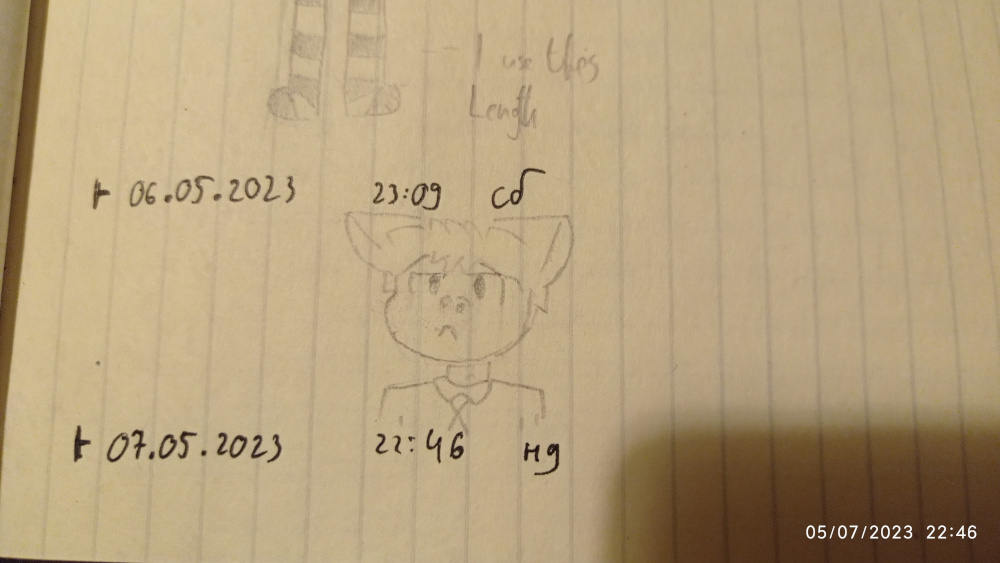 I use this
Length
06.05.2023 23:09 сб
07.05.2023 22:46 нд
05/07/2023 22:46